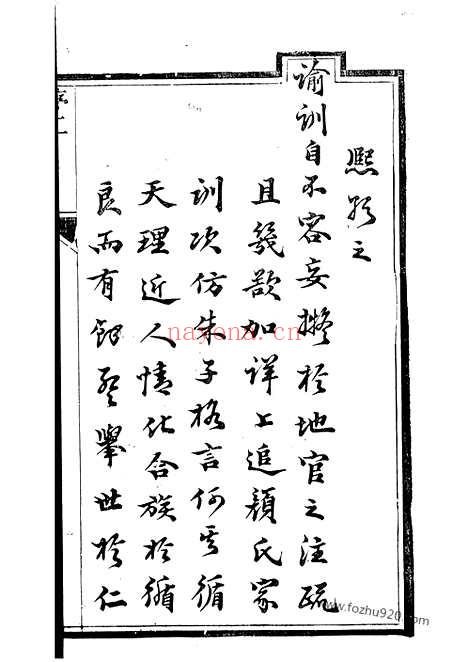 熙朝之
諭訓自不容妄擬於地官之注疏
且幾歆加详上追顏氏家
訓次仿朱子格言何其循
天理近人情化合族於循
良而有餘登舉世於仁
nayona.cn
www.fozhu920.com